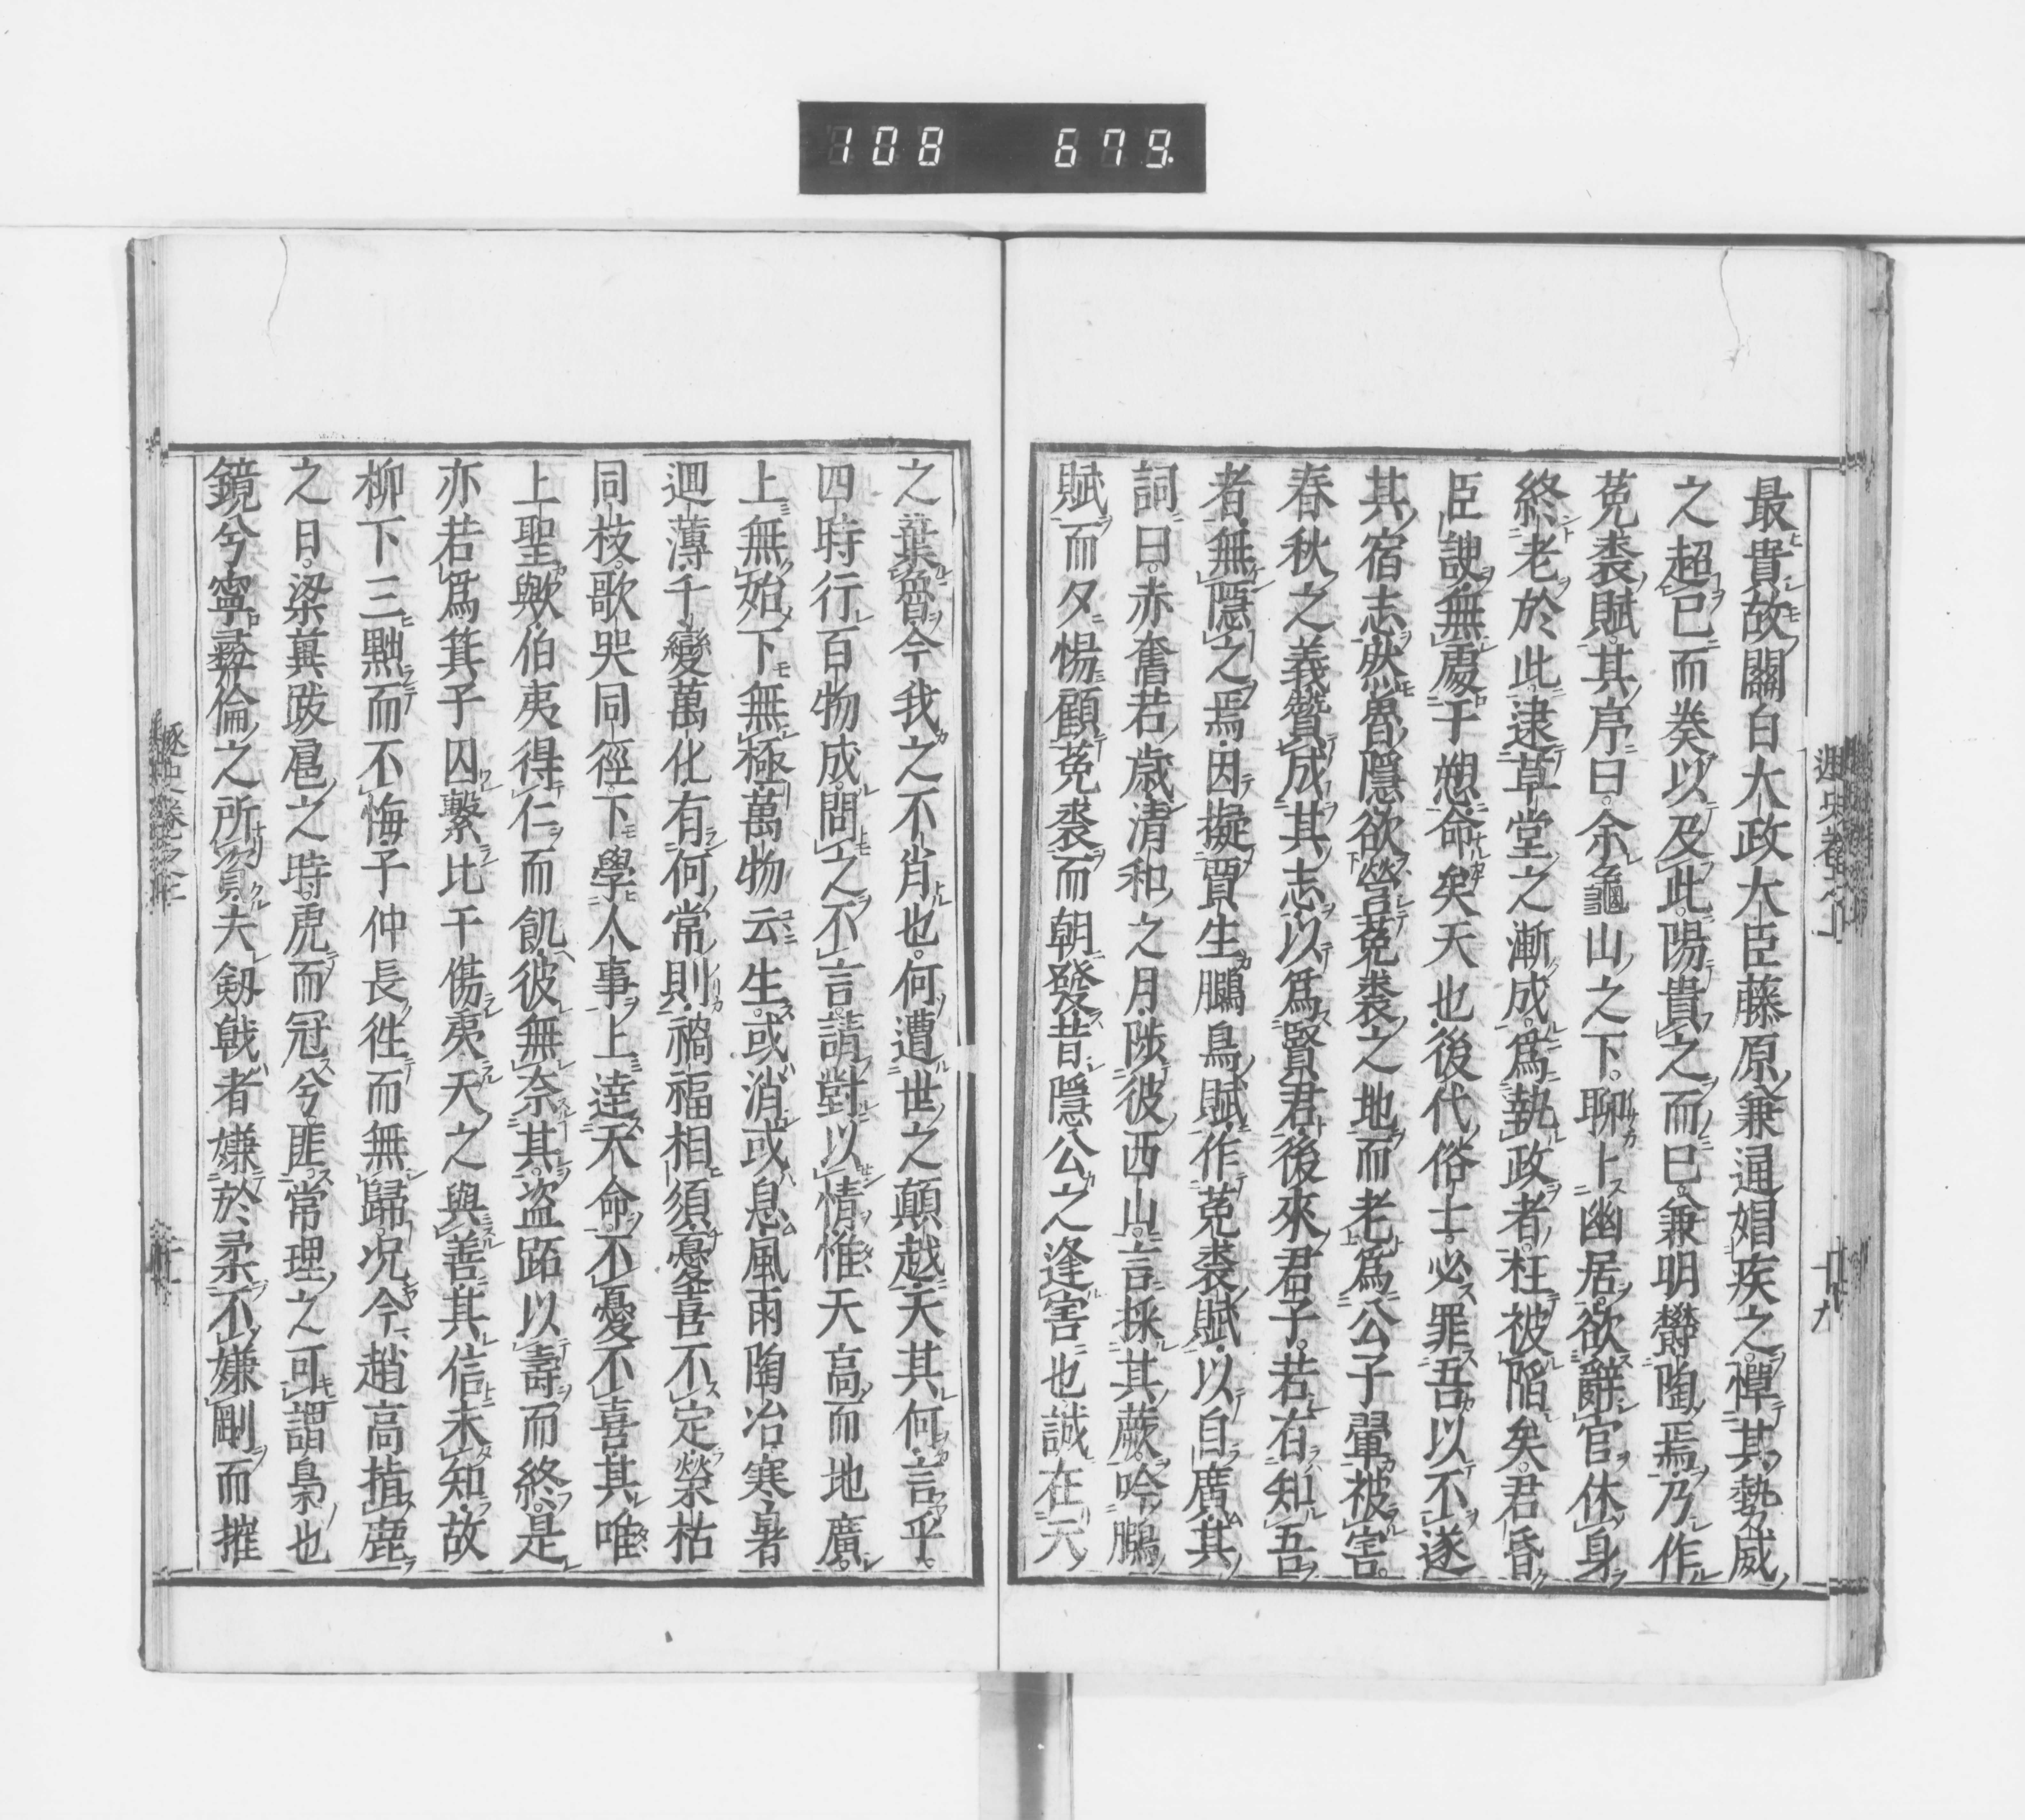 108 679
最貴故關白太政大臣藤原兼通娼疾之憚其勢威
之超已而癸以及此陽貴之而已兼明欝陶焉乃作
菟裘賦其序曰余龜山之下聊卜幽居欲辭官休身
終老於此逮草堂之漸成爲執政者枉被陥矣君昏
臣諛無處于愬命矣天也後代俗士必罪吾以不遂
其宿志然魯隱欲營菟裘之地而老爲公子翬被害
春秋之義贊成其志以爲賢君後來君子若右知吾
者無隱之焉因擬賈生鵩鳥賦作菟裘賦以自廣其
詞曰赤奮若歳清和之月陟彼西山言採其蕨吟鵩
賦而夕惕顧菟裘而朝發昔隱公之逢害也誠在天
之棄魯今我之不肖也何遭世之顛越天其何言乎
四時行百物成問之不言請對以情惟天高而地廣
上無始下無極萬物云生或消或息風雨陶冶寒暑
迴薄千變萬化有何常則禍福相須憂喜不定榮枯
同枝歌哭同徑下學人事上達天命不憂不喜其唯
上聖歟伯夷得仁而飢彼無奈其盗跖以壽而終是
亦若爲箕子囚繫比干傷夷天之與善其信未知故
柳下三黜而不悔子仲長徃而無歸况今趙高揎鹿
之日梁冀跋扈之時虎而冠兮匪常理之可謂梟也
鏡兮寧彛倫之所資夫剱戟者嫌於柔不嫌剛而摧